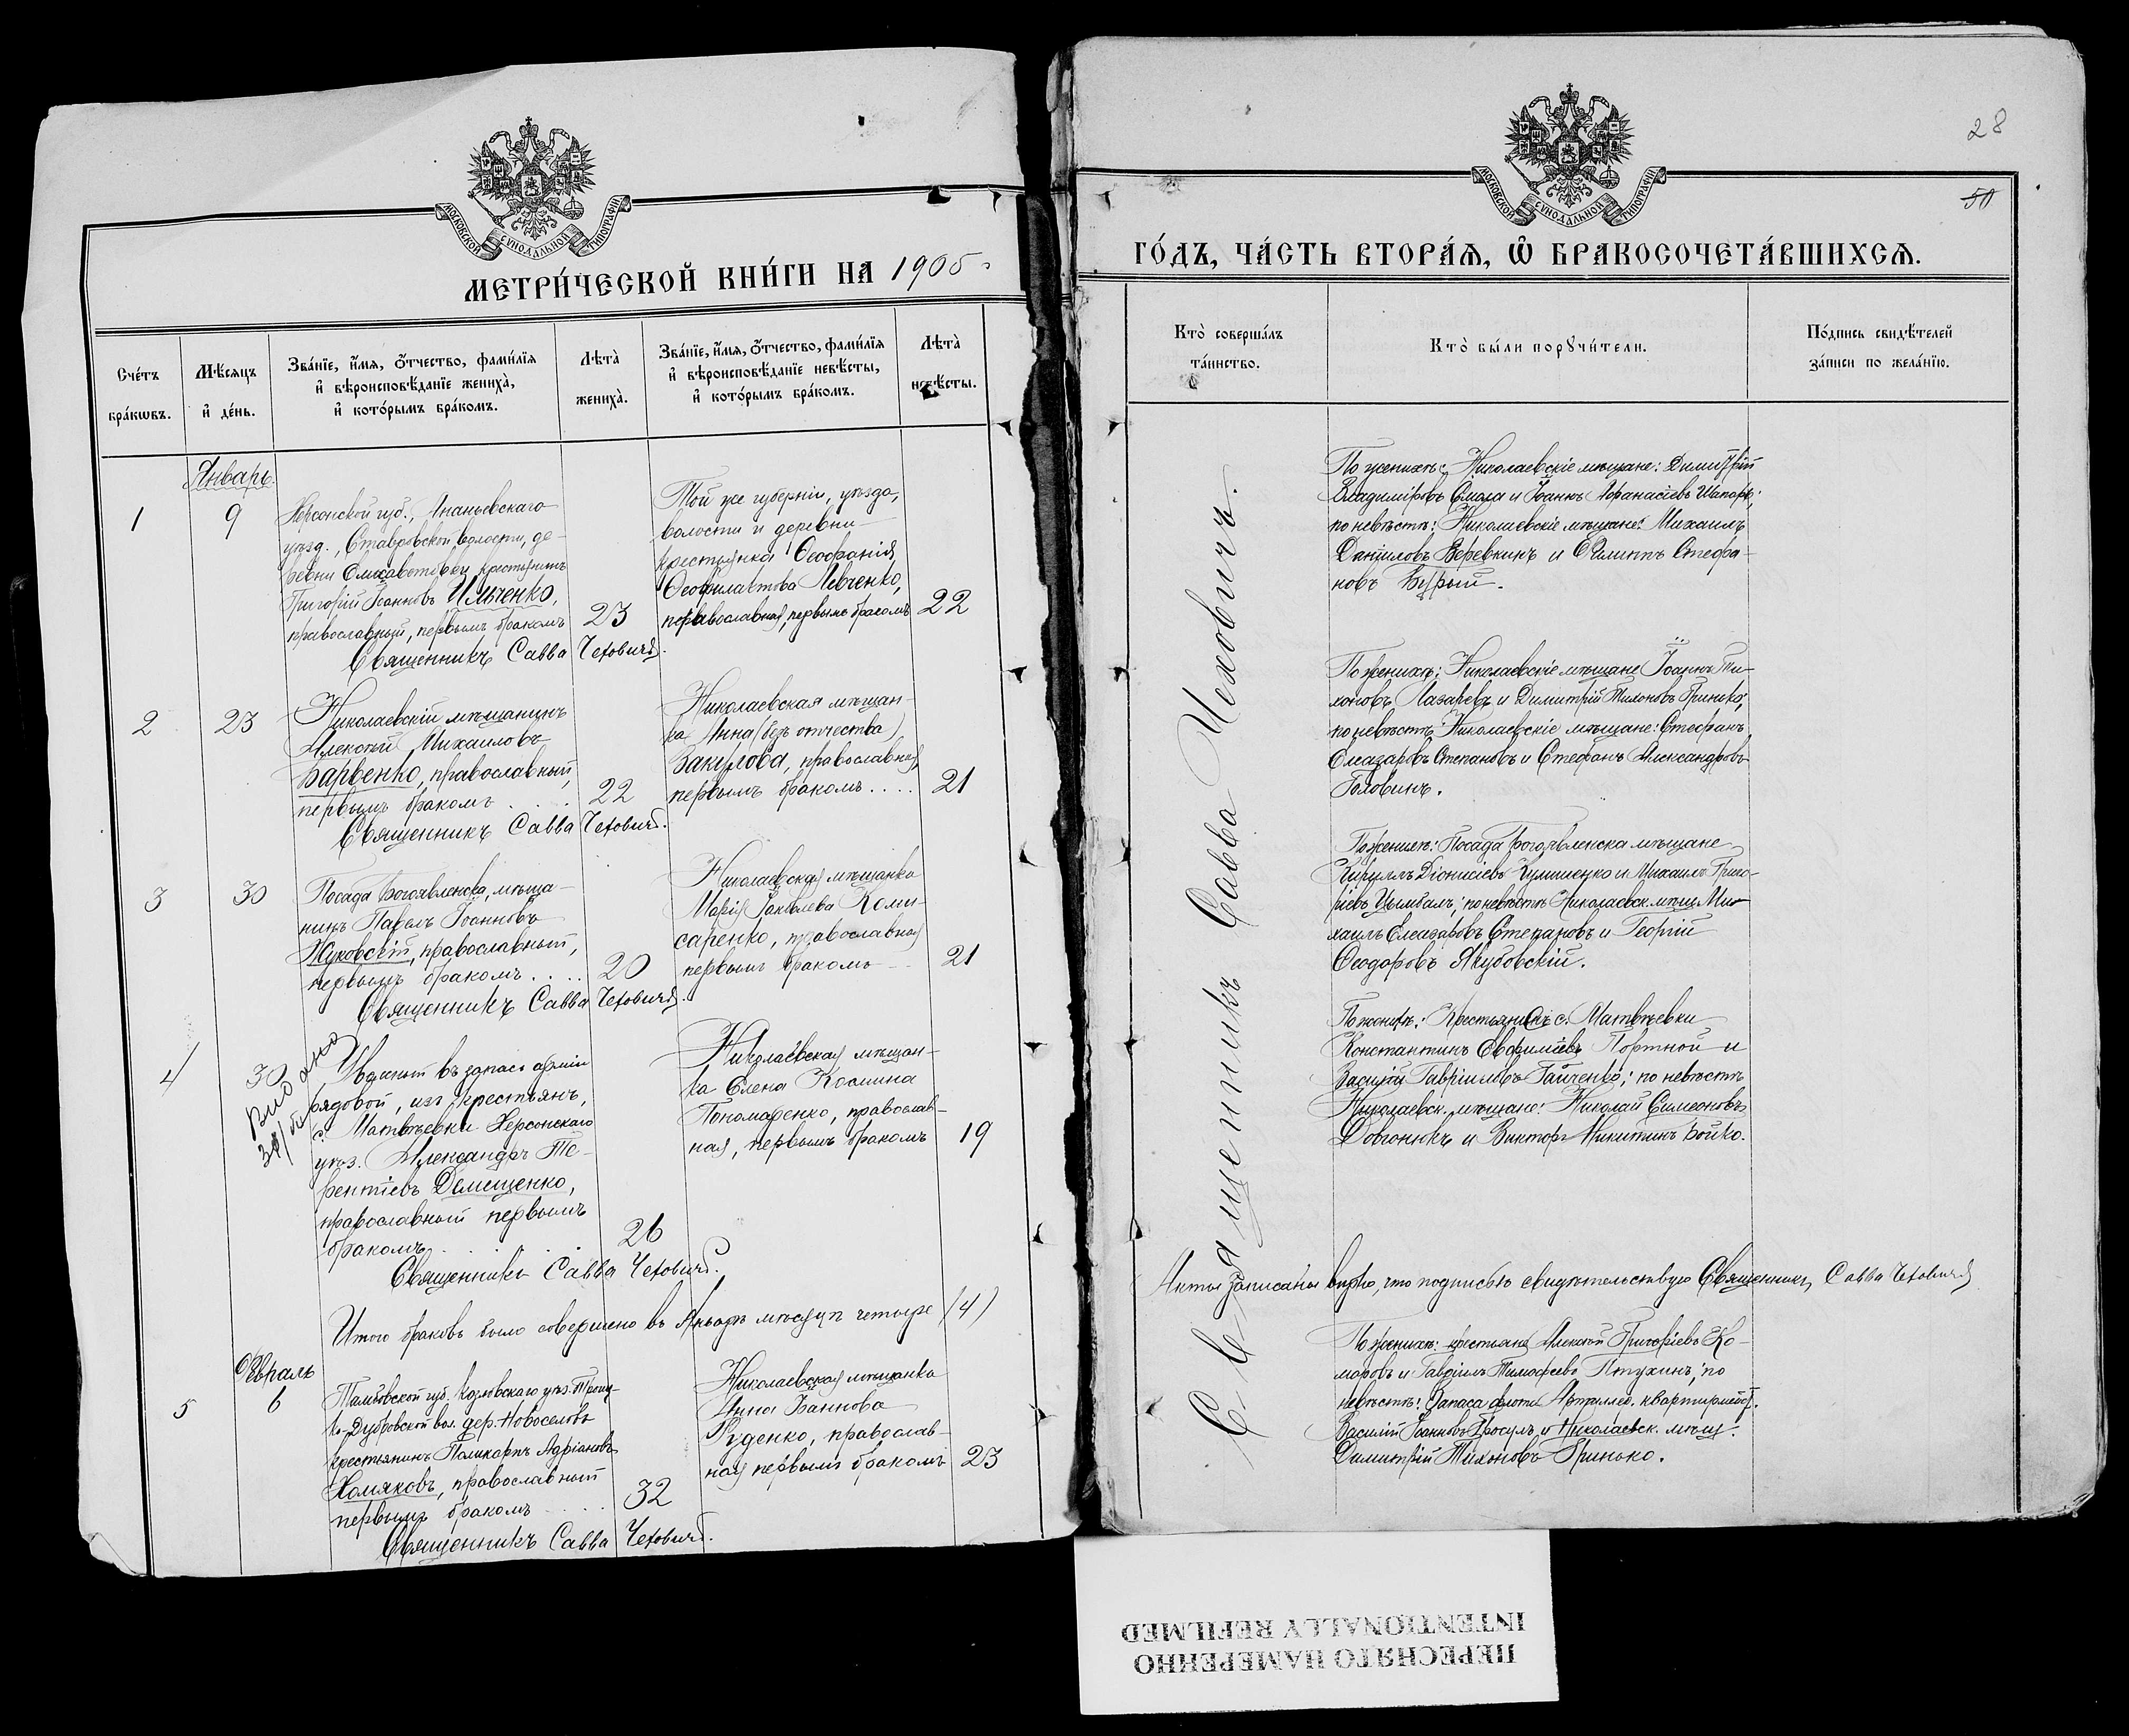 МОСКОВСКОЙ СѴНОДАЛЬНОЙ ТИПОГРАФІИ
МЕТРИ́ЧЕСКОЙ КНИ́ГИ НА 1905 г.
Сче́тъ
бра́кѡвъ.
Мѣ́сяцъ
и҆ де́нь.
Зва́нїе, и҆́мя, ѻ҆́тчество, фами́лїя
и҆ вѣроисповѣ́данїе жениха̀,
и҆ кото́рымъ бра́комъ.
Лѣта̀
жениха̀.
Зва́нїе, и҆́мя, ѻ҆́тчество, фами́лїя
и҆ вѣроисповѣ́данїе невѣ́сты,
и҆ кото́рымъ бра́комъ.
Лѣта̀
невѣ́сты.
Январь.
1
9
Херсонской губ., Ананьевскаго
уѣзд., Ставровской волости, де-
ревни Елисаветовки крестьянинъ
Григорій Іоанновъ Ильченко,
православный, первымъ бракомъ
23
Той же губерніи, уѣзда,
волости и деревни
крестьянка Ѳеофанія
Ѳеофилактова Левченко,
православная, первымъ бракомъ
22
Священникъ Савва Чеховичъ.
2
23
Николаевскій мѣщанинъ
Алексѣй Михаиловъ
Барвенко, православный,
первымъ бракомъ . . .
22
Николаевская мѣщан-
ка Анна (безъ отчества)
Вакулова, православная,
первымъ бракомъ . . . .
21
Священникъ Савва Чеховичъ.
3
30
Посада Богоявленска, мѣща-
нинъ Павелъ Іоанновъ
Жуковскій, православный,
первымъ бракомъ . . . .
20
Николаевская мѣщанка
Марія Іаковлева Коми-
саренко, православная
первымъ бракомъ
21
Священникъ Савва Чеховичъ.
4
30
Уволенный въ запасъ арміи
рядовой, изъ крестьянъ,
с. Матвѣевки Херсонскаго
уѣз. Александръ Те-
рентіевъ Демещенко,
православный первымъ
бракомъ . . . .
26
Николаевская мѣщан-
ка Елена Косьмина
Пономаренко, православ-
ная, первымъ бракомъ
19
Священникъ Савва Чеховичъ.
Итого браковъ было совершено въ Январѣ мѣсяцѣ четыре (4)
Февраль
5
6
Тамбовской губ. Козловскаго уѣз.
дер. Новоселовъ
крестьянинъ Поликарпъ Адріановъ
Хомяковъ, православный
первымъ бракомъ . . . .
32
Николаевская мѣщанка
Анна Іоаннова
Руденко, православ-
ная первымъ бракомъ
23
Священникъ Савва Чеховичъ.
28
50
МОСКОВСКОЙ СѴНОДАЛЬНОЙ ТИПОГРАФІИ
ГО́ДЪ, ЧА́СТЬ ВТОРА́Я, Ѽ БРАКОСОЧЕТА́ВШИХСЯ.
Кто̀ соверша́лъ
та́инство.
Кто̀ бы́ли порꙋчи́тели.
По́дпись свидѣ́телей
за́писи по жела́нїю.
Священникъ Савва Чеховичъ.
По женихѣ: Николаевскіе мѣщане: Димитрій
Владиміровъ Смола и Іоаннъ Аѳанасіевъ Шапарь;
по невѣстѣ: Николаевскіе мѣщане: Михаилъ
Даніиловъ Веревкинъ и Филиппъ Стефа-
новъ Бурый.
По женихѣ: Николаевскіе мѣщане Іоаннъ Ти-
хоновъ Лазаревъ и Димитрій Тихоновъ Гринько,
по невѣстѣ: Николаевскіе мѣщане: Стефанъ
Елеазаровъ Степановъ и Стефанъ Александровъ
Головинъ.
По женихѣ: Посада Богоявленска мѣщане
Кириллъ Діонисіевъ Кулишенко и Михаилъ Григо-
ріевъ Цымбалъ; по невѣстѣ Николаевск. мѣщ. Ми-
хаилъ Елеазаровъ Степановъ и Георгій
Ѳеодоровъ Якубовскій.
По женихѣ: Крестьяне с. Матвѣевки
Константинъ Евфиміевъ Портной и
Василій Гавріиловъ Гайченко; по невѣстѣ
Николаевск. мѣщане: Николай Симеоновъ
Довгонюкъ и Викторъ Никитинъ Бойко.
Акты записаны вѣрно, что подписью свидѣтельствую Священникъ Савва Чеховичъ
По женихѣ: крестьяне Алексѣй Григоріевъ Ко-
маровъ и Гавріилъ Тимоѳеевъ Птухинъ; по
невѣстѣ: Запаса флота Артиллер. квартирмейст.
Василій Іоанновъ и Николаевск. мѣщ.
Димитрій Тихоновъ Гринько.
ПЕРЕСНЯТО НАМЕРЕННО
INTENTIONALLY REFILMED